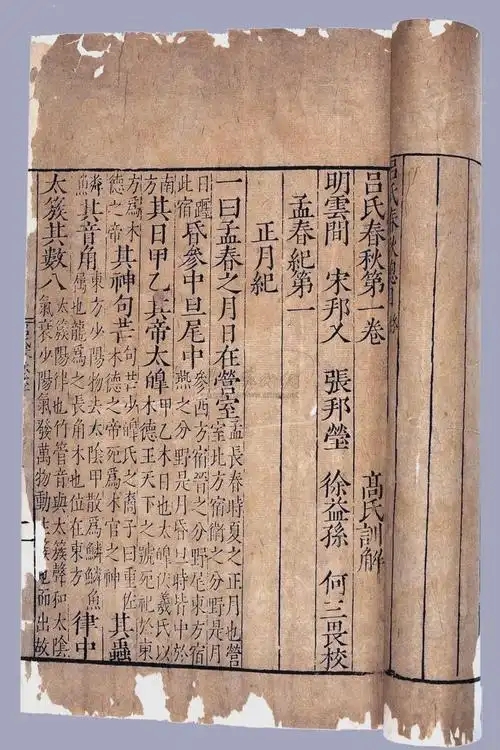 呂氏春秋總目
呂氏春秋第一卷 高氏訓解
明雲間 宋邦乂 張邦瑩 徐益孫 何三畏校
孟春紀第一
正月紀
一曰孟春之月日在營室孟長春時夏之正月也營室北方宿衛之分野是月
日躔此宿昏參中旦尾中參西方宿晉之分野尾東方宿燕之分野是月昏旦時皆中於
南方其日甲乙其帝太皥甲乙木日也太皥伏羲氏以木德王天下之號死祀於東
方爲木德之帝其神句芒句芒少皥氏之裔子曰重佐木德之帝死爲木官之神其蟲
鱗魚其音角東方少陽物去太陰甲散爲鱗鱗魚屬也龍爲之長角木也位在東方律中
太簇其數八太簇陽律也竹管音與太簇聲和太陰氣衰少陽氣發萬物動生簇地而出故